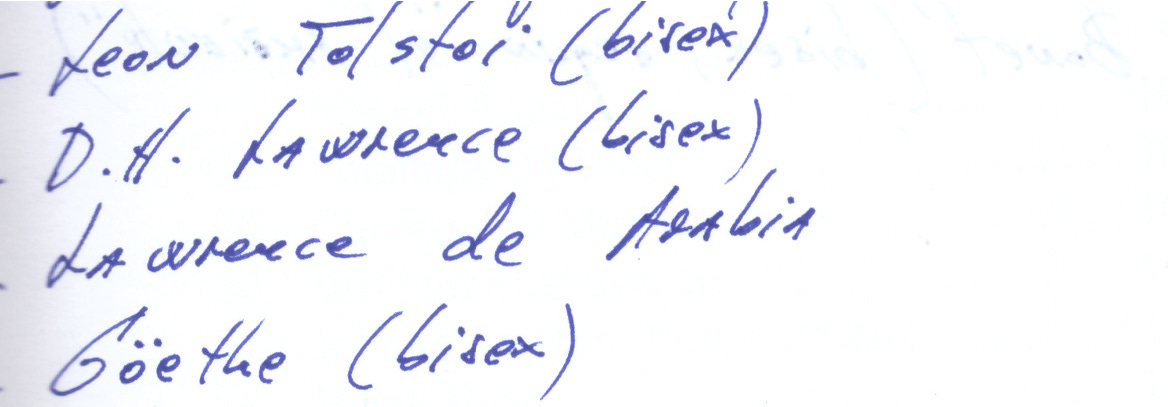 - Leon Tolstoi (bisex)
- D.H. Lawrence (bisex)
- Lawrence de Arabia
- Göethe (bisex)